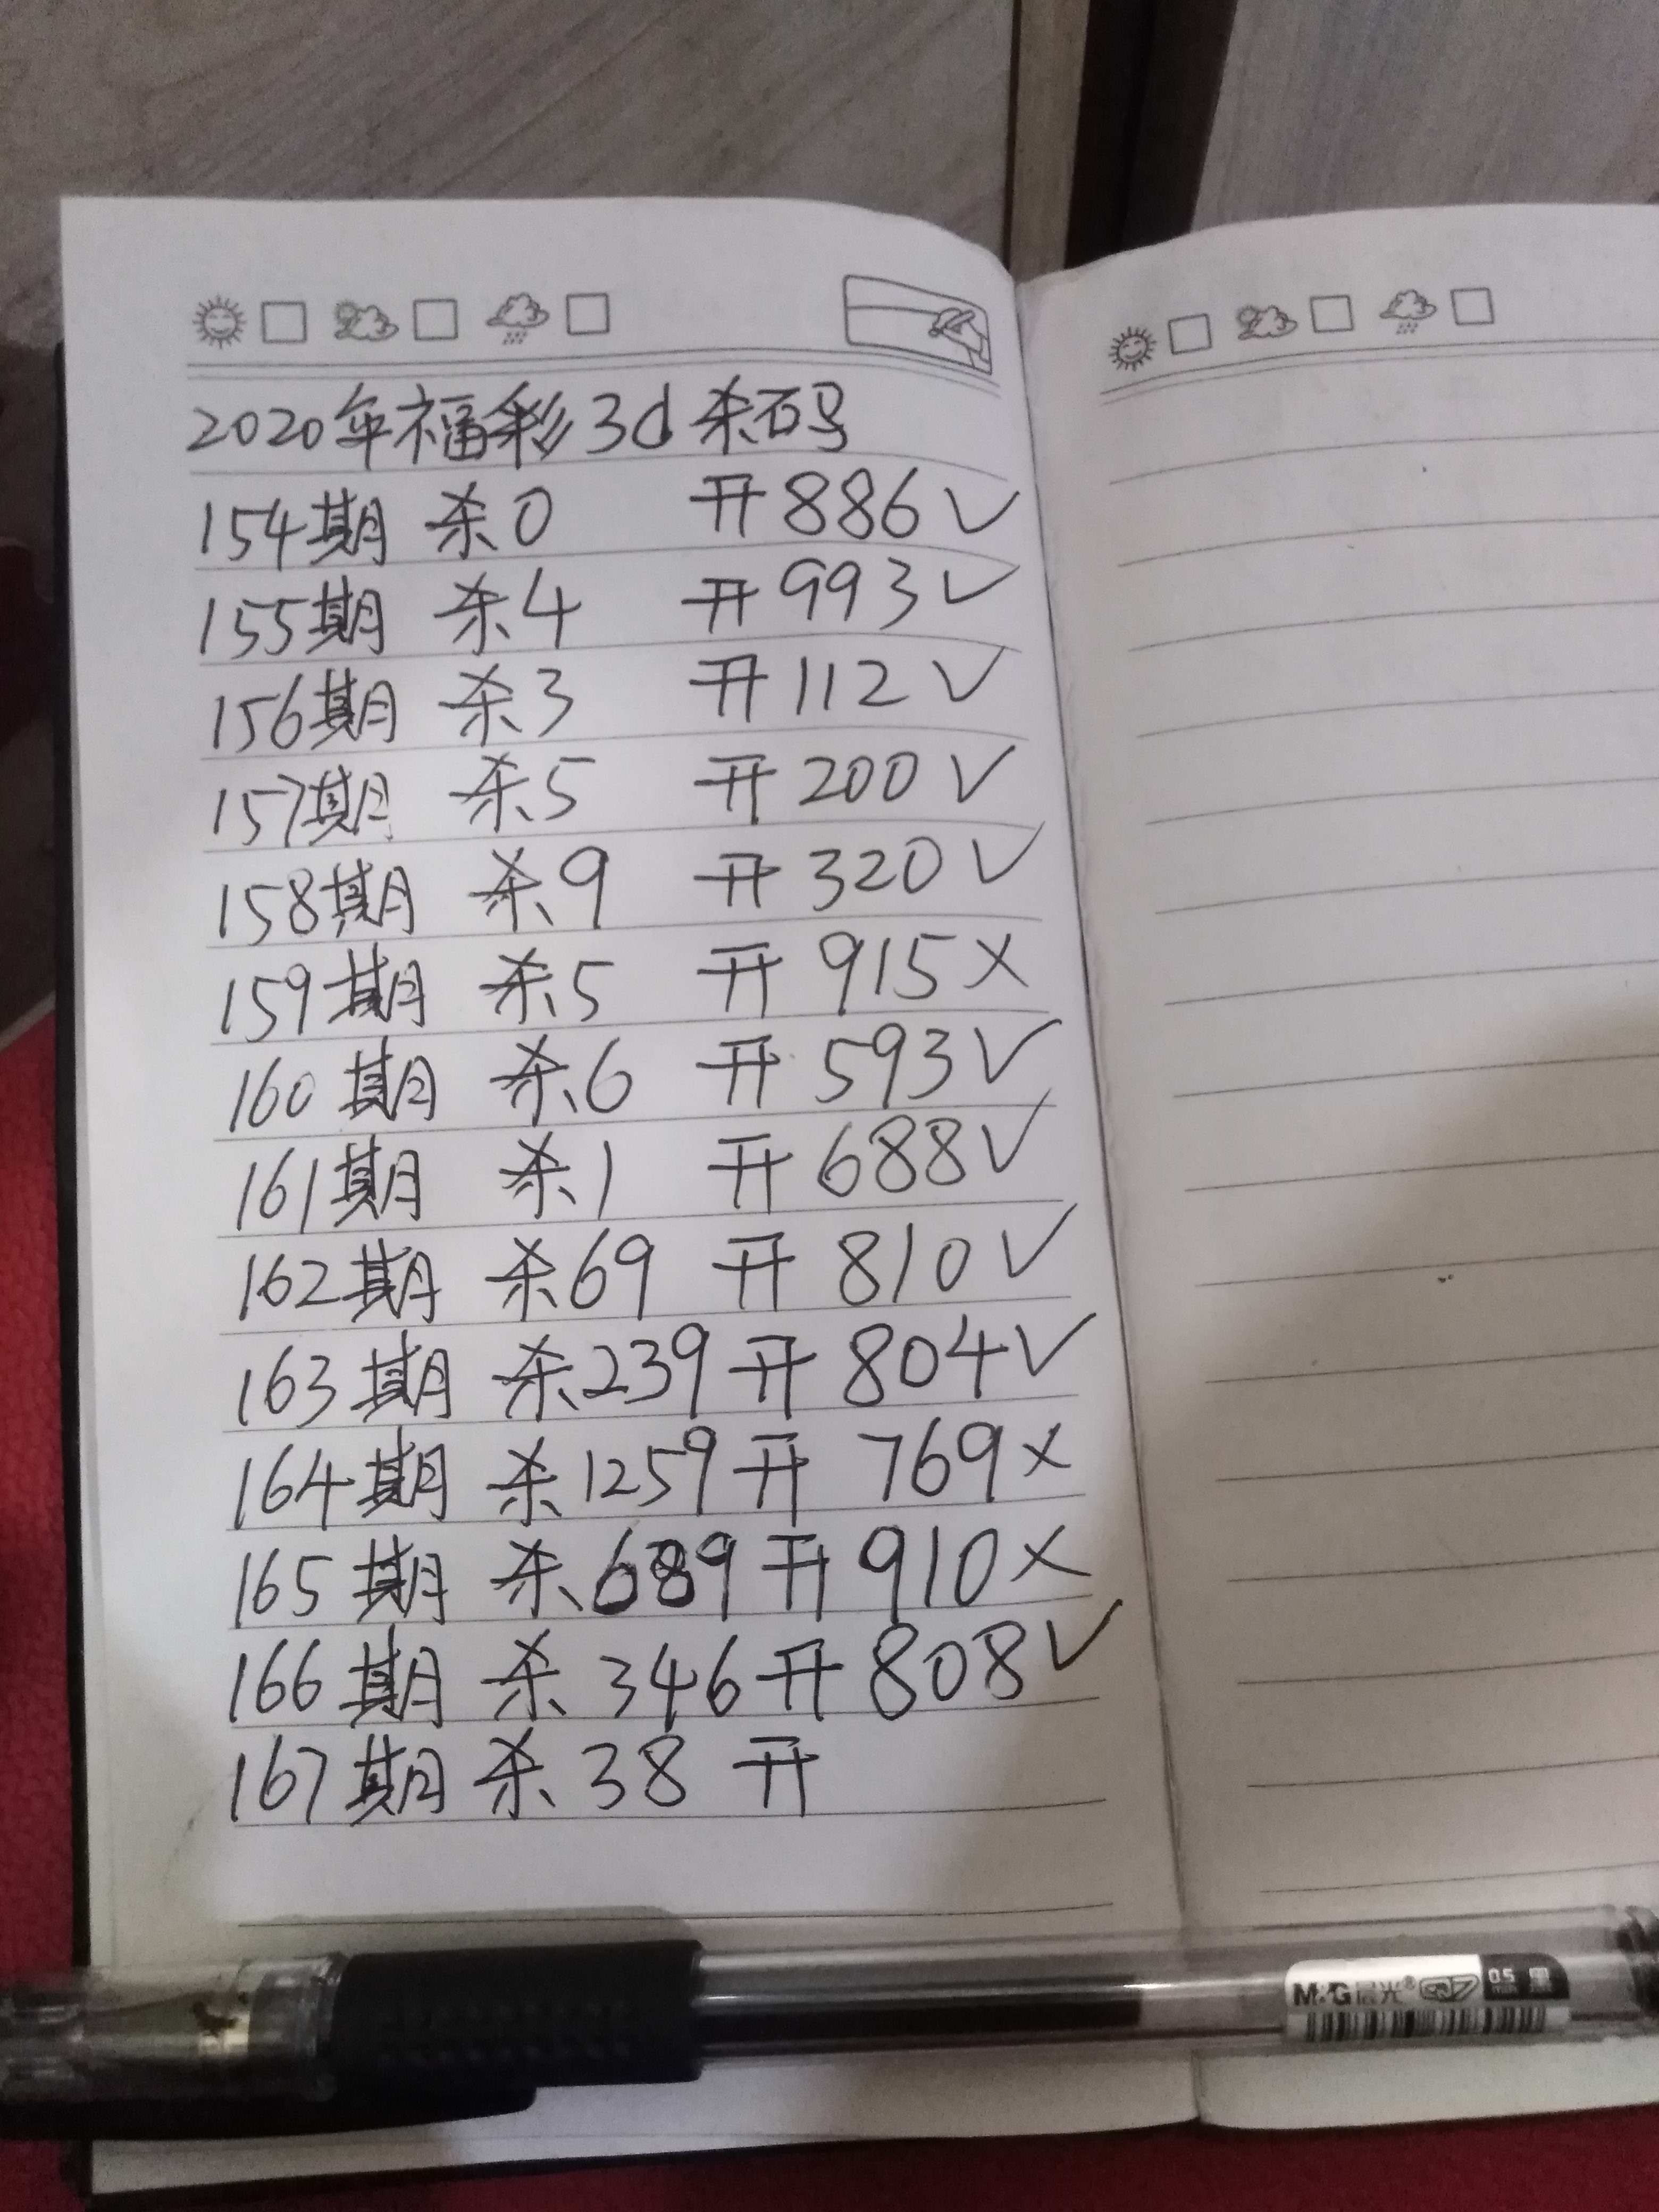 2020年福彩3d杀码
154期 杀0 开886√
155期 杀4 开993√
156期 杀3 开112√
157期 杀5 开200√
158期 杀9 开320√
159期 杀5 开915×
160期 杀6 开593√
161期 杀1 开688√
162期 杀69 开810√
163期 杀239开804√
164期 杀1259开 769×
165期 杀689开910×
166期 杀346开808√
167期 杀38 开
M&G晨光® Q7 0.5 黑